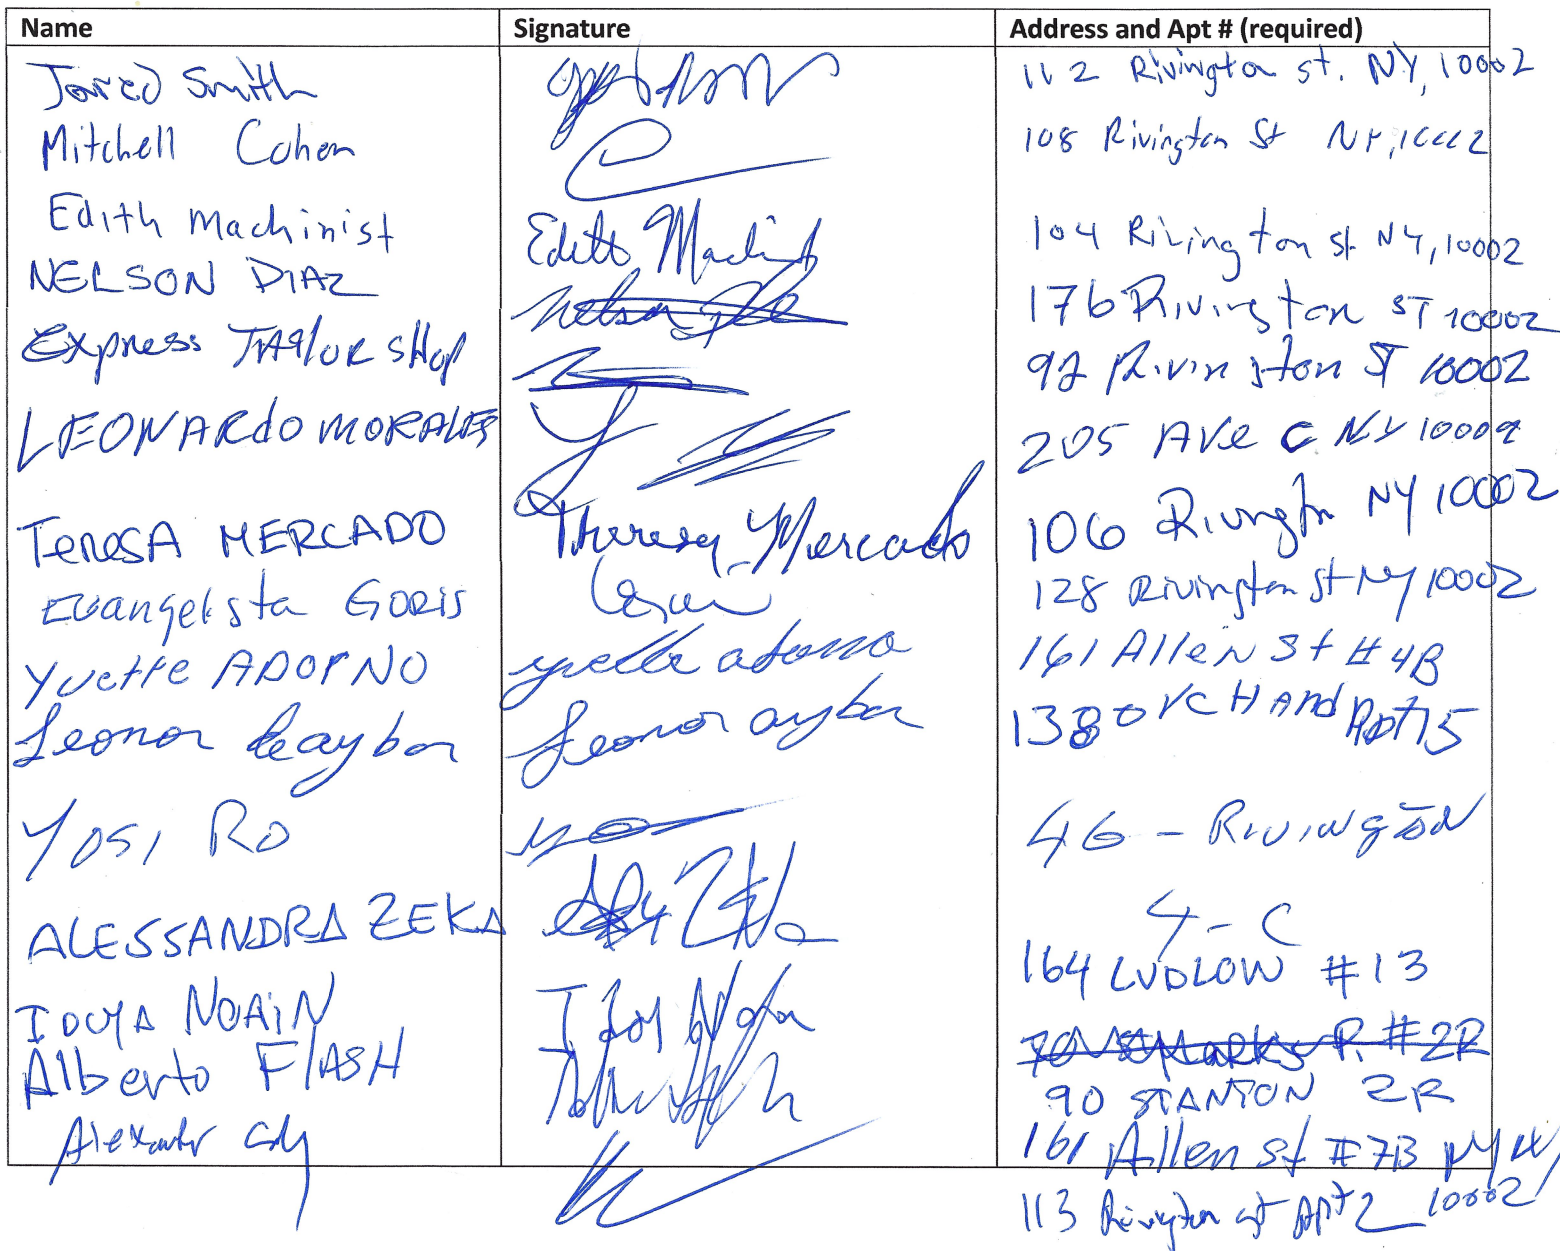 Name Signature Address and Apt # (required)
Jared Smith 112 Rivington st. NY, 10002
Mitchell Cohen 108 Rivington St NY, 10002
Edith Machinist Edith Machinist 104 Rivington st NY, 10002
NELSON DIAZ Nelson 176 Rivington ST 10002
Express TAylor SHop 92 Rivington ST 10002
LEONARdo MORALES 205 AVe C NY 10009
TereSA MERCADO Theresa Mercado 106 Rivington NY 10002
Evangelista GORIS 128 Rivington st NY 10002
Yvette ADORNO yvette adorno 161 Allen St # 4B
Leonor aybar Leonor aybar 138 ORCHArd Apt 15
YOSI RO 46 - RIVINGTON
4 - C
ALESSANDRA ZEKA 164 LUDLOW #13
IDOYA NOAiN #2R
90 STANTON 2R
Alberto FlASH 161 Allen st #7B NY NY
Alexander 113 Rivington st Apt 2 10002